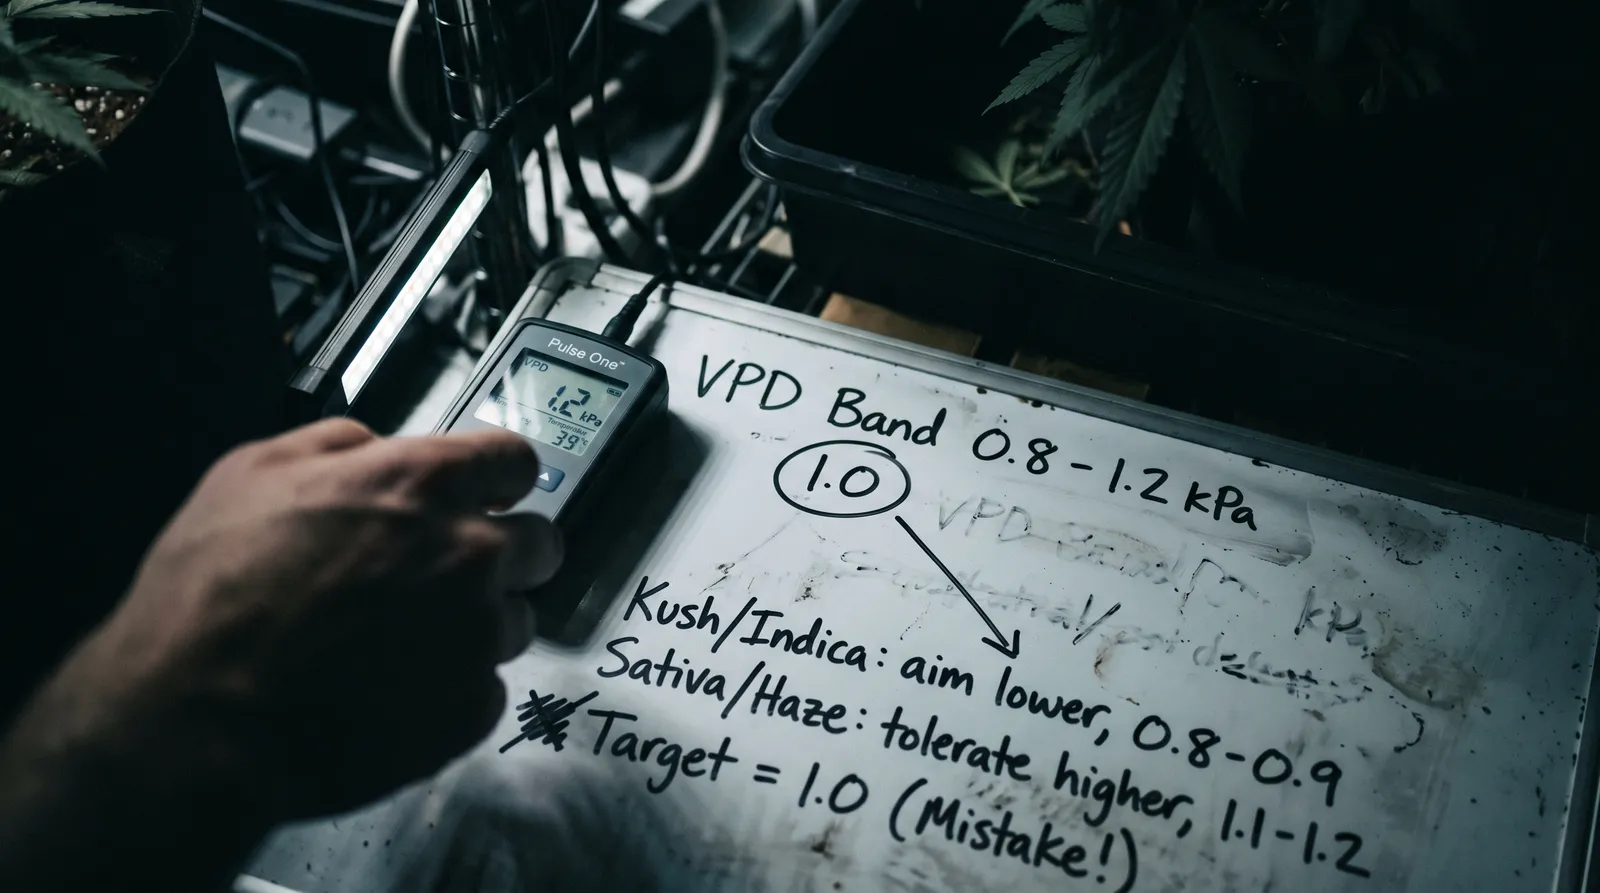 Pulse One™
VPD
1.2 kPa
39°C
VPD Band 0.8-1.2 kPa
1.0
VPD
kPa
Kush/Indica: aim lower, 0.8-0.9
Sativa/Haze: tolerate higher, 1.1-1.2
Target = 1.0 (Mistake!)